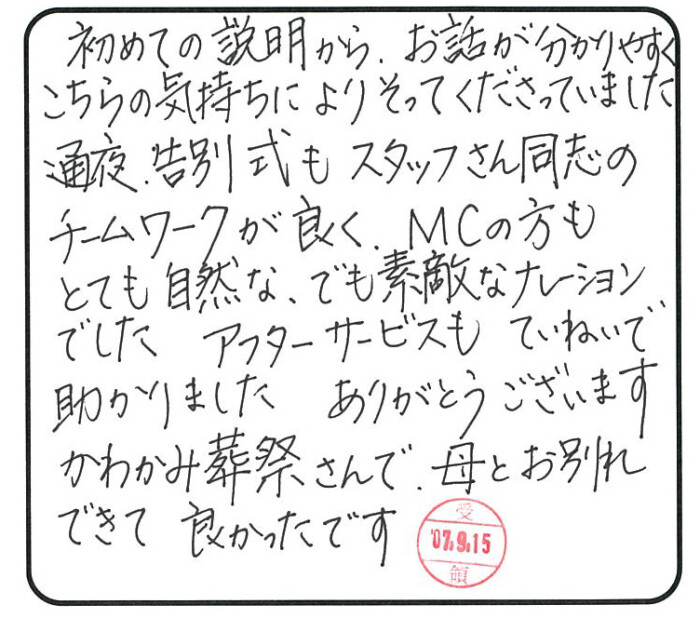 初めての説明から、お話が分かりやすく
こちらの気持ちによりそってくださっていました
通夜、告別式もスタッフさん同志の
チームワークが良く、MCの方も
とても自然な、でも素敵なナレーション
でした アフターサービスも ていねいで
助かりました ありがとうございます
かわかみ葬祭さんで、母とお別れ
できて 良かったです
受
'07.9.15
領